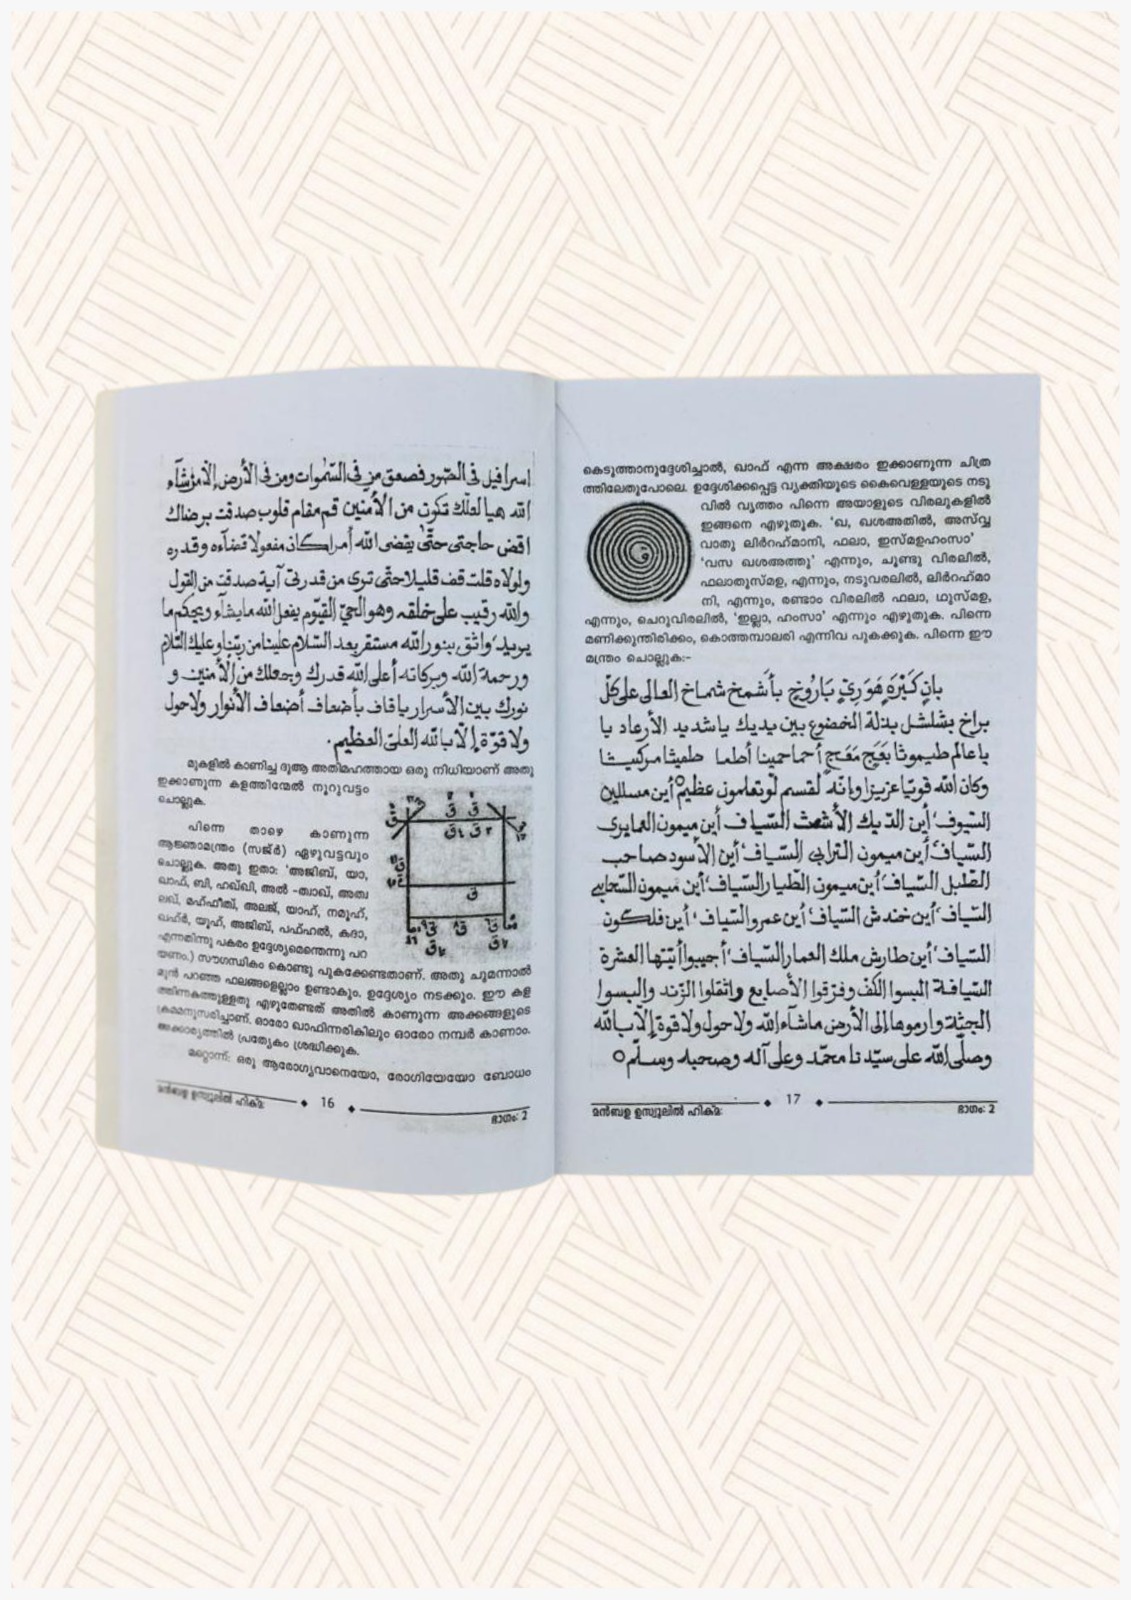 اسرافيل فى الصّور فصعق من فى السّموات ومن فى الأرض إلاّ من شآء
الله هيا لعلك تكون من الأمنين قم مقام قلوب صدقت برضاك
اقض حاجتى حتّى يقضى الله أمرا كان مفعولا قضاءه وقدره
ولولاه قلت قف قليلا حتّى ترى من قدرتى آية صدقت من القول
والله رقيب على خلقه وهو الحيّ القيّوم يفعل الله ما يشآء ويحكم ما
يريد واثق بنور الله مستقر بعد السّلام علينا من ربّنا وعليك السّلام
ورحمة الله وبركاته أعلى الله قدرك وجعلك من الأمنين و
نورك بين الأسرار يا قاف بأضعاف أضعاف الأنوار ولا حول
ولا قوّة إلاّ بالله العليّ العظيم.
മുകളിൽ കാണിച്ച ദുആ അതിമഹത്തായ ഒരു നിധിയാണ് അതു
ഇക്കാണുന്ന കളത്തിന്മേൽ നൂറുവട്ടം
ചൊല്ലുക.
പിന്നെ താഴെ കാണുന്ന
ആജ്ഞാമന്ത്രം (സജ്ർ) ഏഴുവട്ടവും
ചൊല്ലുക. അതു ഇതാ: 'അജിബ്, യാ,
ഖാഫ്, ബി, ഹഖ്ഖി, അൽ
ലഖ്, മഹ്ഫീത്വ്, അലജ്, യാഹ്, നമൂഹ്,
ഖഹ്ർ, യൂഹ്, അജിബ്, പഫ്ഹൽ, കദാ,
എന്നതിന്നു പകരം ഉദ്ദേശ്യമെന്തെന്നു പറ
യണം.) സൗഗന്ധികം കൊണ്ടു പുകക്കേണ്ടതാണ്. അതു ചുമന്നാൽ
മുൻ പറഞ്ഞ ഫലങ്ങളെല്ലാം ഉണ്ടാകും. ഉദ്ദേശ്യം നടക്കും. ഈ കള
ത്തിന്നകത്തുള്ളതു എഴുതേണ്ടത് അതിൽ കാണുന്ന അക്കങ്ങളുടെ
ക്രമമനുസരിച്ചാണ്. ഓരോ ഖാഫിന്നരികിലും ഓരോ നമ്പർ കാണാം.
അക്കാര്യത്തിൽ പ്രത്യേകം ശ്രദ്ധിക്കുക.
മറ്റൊന്ന്: ഒരു ആരോഗ്യവാനെയോ, രോഗിയേയോ ബോധം
മൻബഉ ഉസ്വൂലിൽ ഹിക്മ: 16 ഭാഗം: 2
കെടുത്താനുദ്ദേശിച്ചാൽ, ഖാഫ് എന്ന അക്ഷരം ഇക്കാണുന്ന ചിത്ര
ത്തിലേതുപോലെ. ഉദ്ദേശിക്കപ്പെട്ട വ്യക്തിയുടെ കൈവെള്ളയുടെ നടു
വിൽ വൃത്തം പിന്നെ അയാളുടെ വിരലുകളിൽ
ഇങ്ങനെ എഴുതുക. 'ഖ, ഖശഅതിൽ, അസ്വ്വ
വാതു ലിർറഹ്മാനി, ഫലാ, ഇസ്മഉഹംസാ'
'വസ ഖശഅത്തു' എന്നും, ചൂണ്ടു വിരലിൽ,
ഫലാതുസ്മഉ, എന്നും, നടുവരലിൽ, ലിർറഹ്മാ
നി, എന്നും, രണ്ടാം വിരലിൽ ഫലാ, ഥുസ്മഉ,
എന്നും, ചെറുവിരലിൽ, 'ഇല്ലാ, ഹംസാ' എന്നും എഴുതുക. പിന്നെ
മണിക്കുന്തിരിക്കം, കൊത്തമ്പാലരി എന്നിവ പുകക്കുക. പിന്നെ ഈ
മന്ത്രം ചൊല്ലുക:-
بأشمخ شماخ العالى على كلّ
براخ بشلشل بذلة الخضوع بين يديك يا شديد الأرعاد يا
يا عالم طيموثا أحما حمينا أطما طميثا
وكان الله قويّا عزيزا وإنّه لقسم لّو تعلمون عظيم أين مسللين
السّيوف أين الدّيك الأشعث السّياف أين ميمون الغمايرى
السّياف أين ميمون الترابى السّياف أين الأسود صاحب
الطّبل السّياف أين ميمون الطّيار السّياف أين ميمون السّحابى
السّياف أين خندش السّياف أين عمرو السّياف أين فلكون
السّياف أين طارش ملك العمار السّياف أجيبوا أيّتها العشرة
السّيافة البسوا الكفّ وفزقوا الأصابع واثقلوا الزّند والبسوا
الجثّة وارموها إلى الأرض ما شآء الله ولا حول ولا قوة إلاّ بالله
وصلّى الله على سيّدنا محمّد وعلى آله وصحبه وسلّم
മൻബഉ ഉസ്വൂലിൽ ഹിക്മ: 17 ഭാഗം: 2